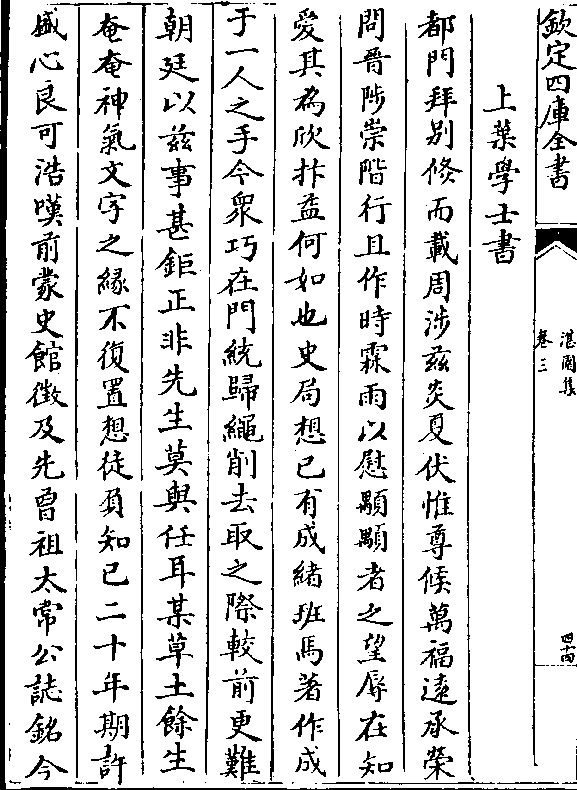 欽定四庫全書
湛園集
卷三
四十四
上葉學士書
都門拜别倐而載周涉兹炎夏伏惟尊候萬福逺承榮
問晉陟崇階行且作時霖雨以慰顒顒者之望辱在知
愛其為欣抃益何如也史局想已有成緒班馬著作成
于一人之手今衆巧在門統歸繩削去取之際較前更難
朝廷以兹事甚鉅正非先生莫與任耳某草土餘生
奄奄神氣文字之縁不復置想徒負知已二十年期許
盛心良可浩嘆前蒙史館徴及先曾祖太常公誌銘今